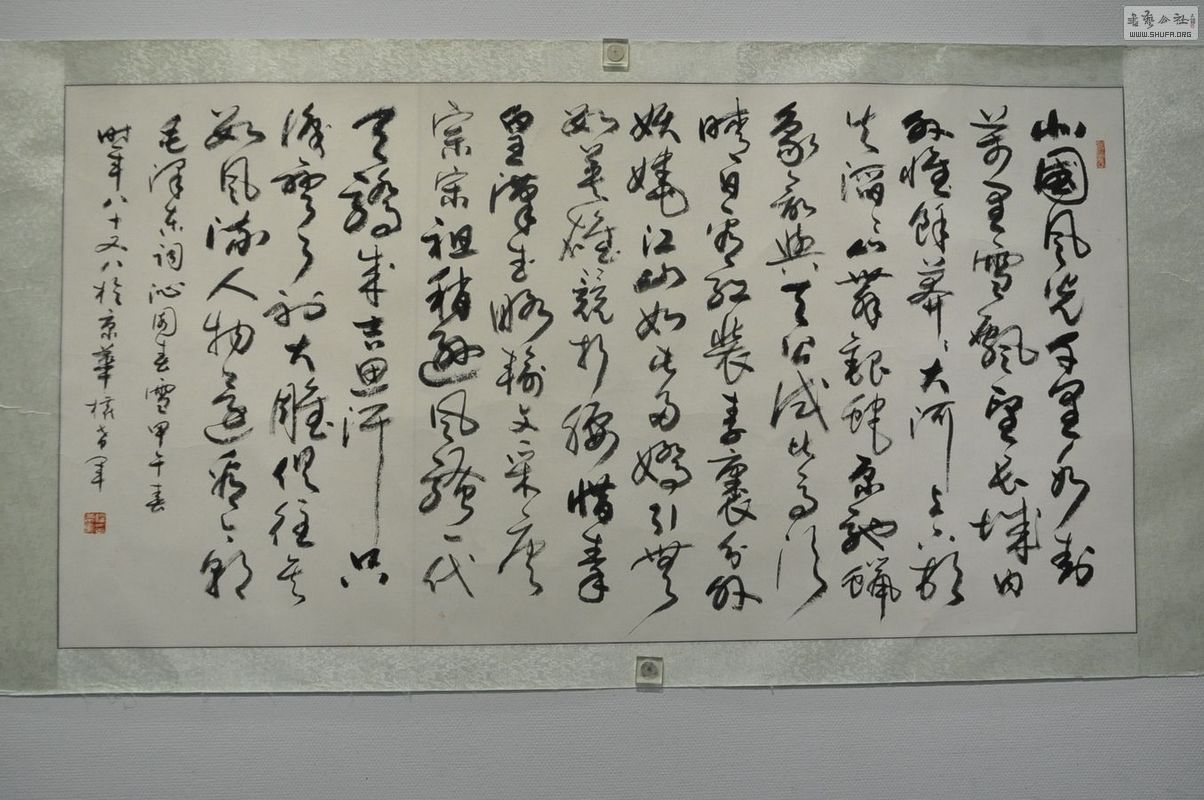 北國風光千里冰封
萬里雪飄望長城內
外惟餘莽〻大河上下頓
失滔〻山舞銀蛇原馳蠟
象欲與天公試比高須
晴日看紅裝素裹分外
妖嬈江山如此多嬌引無
數英雄競折腰惜秦
皇漢武略輸文采唐
宗宋祖稍遜風騷一代
天驕成吉思汗只
識彎弓射大雕俱往矣
數風流人物還看今朝
毛澤東詞沁園春雪甲午春
時年八十又八於京華
書藝公社
WWW.SHUFA.ORG